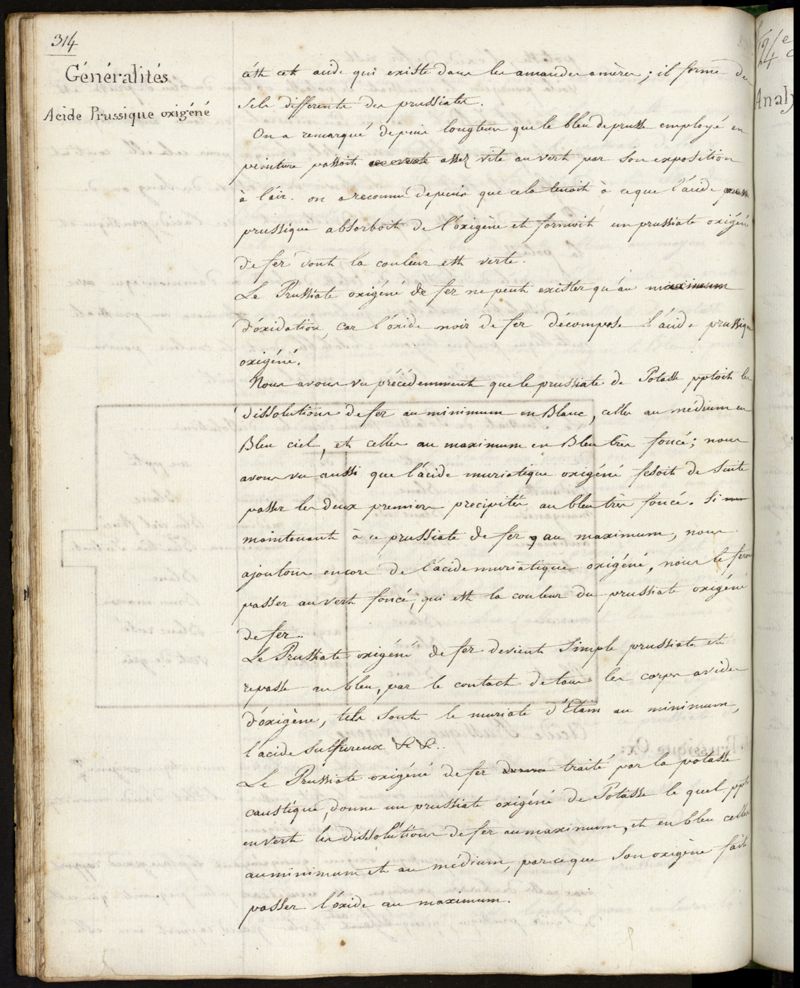 314
Généralités
Acide Prussique oxigéné
c'est cet acide qui existe dans les amandes amères ; il forme des
sels différents des prussiates.
On a remarqué depuis longtems que le bleu de prusse employé en
peinture passoit assez vite au vert par son exposition
à l'air. on a reconnu depuis que cela tenoit à ce que l'acide
prussique absorboit de l'oxigène et formoit un prussiate oxigéné
de fer dont la couleur est verte.
Le Prussiate oxigéné de fer ne peut exister qu'au maximum
d'oxidation, car l'oxide noir de fer décompose l'acide prussique
oxigéné.
Nous avons vu précédemment que le prussiate de Potasse pptoit les
dissolutions de fer au minimum en Blanc, celles au médium en
Bleu ciel, et celles au maximum en Bleu très foncé; nous
avons vu aussi que l'acide muriatique oxigéné fesoit de suite
passer les deux premiers precipités au bleu très foncé. Si
maintenant à ce prussiate de fer, au maximum, nous
ajoutons encore de l'acide muriatique oxigéné, nous le fesons
passer au vert foncé, qui est la couleur du prussiate oxigéné
de fer.
Le Prussiate oxigéné de fer devient simple prussiate et
repasse au bleu, par le contact de tous les corps avides
d'oxigène, tels sont le muriate d'Etain au minimum,
l'acide sulfureux &c &c.
Le Prussiate oxigéné de fer traité par la potasse
caustique, donne un prussiate oxigéné de Potasse le quel ppte
en vert les dissolutions de fer au maximum, et en bleu celles
au minimum et au médium, parce que son oxigène fait
passer l'oxide au maximum.
24e
Analy